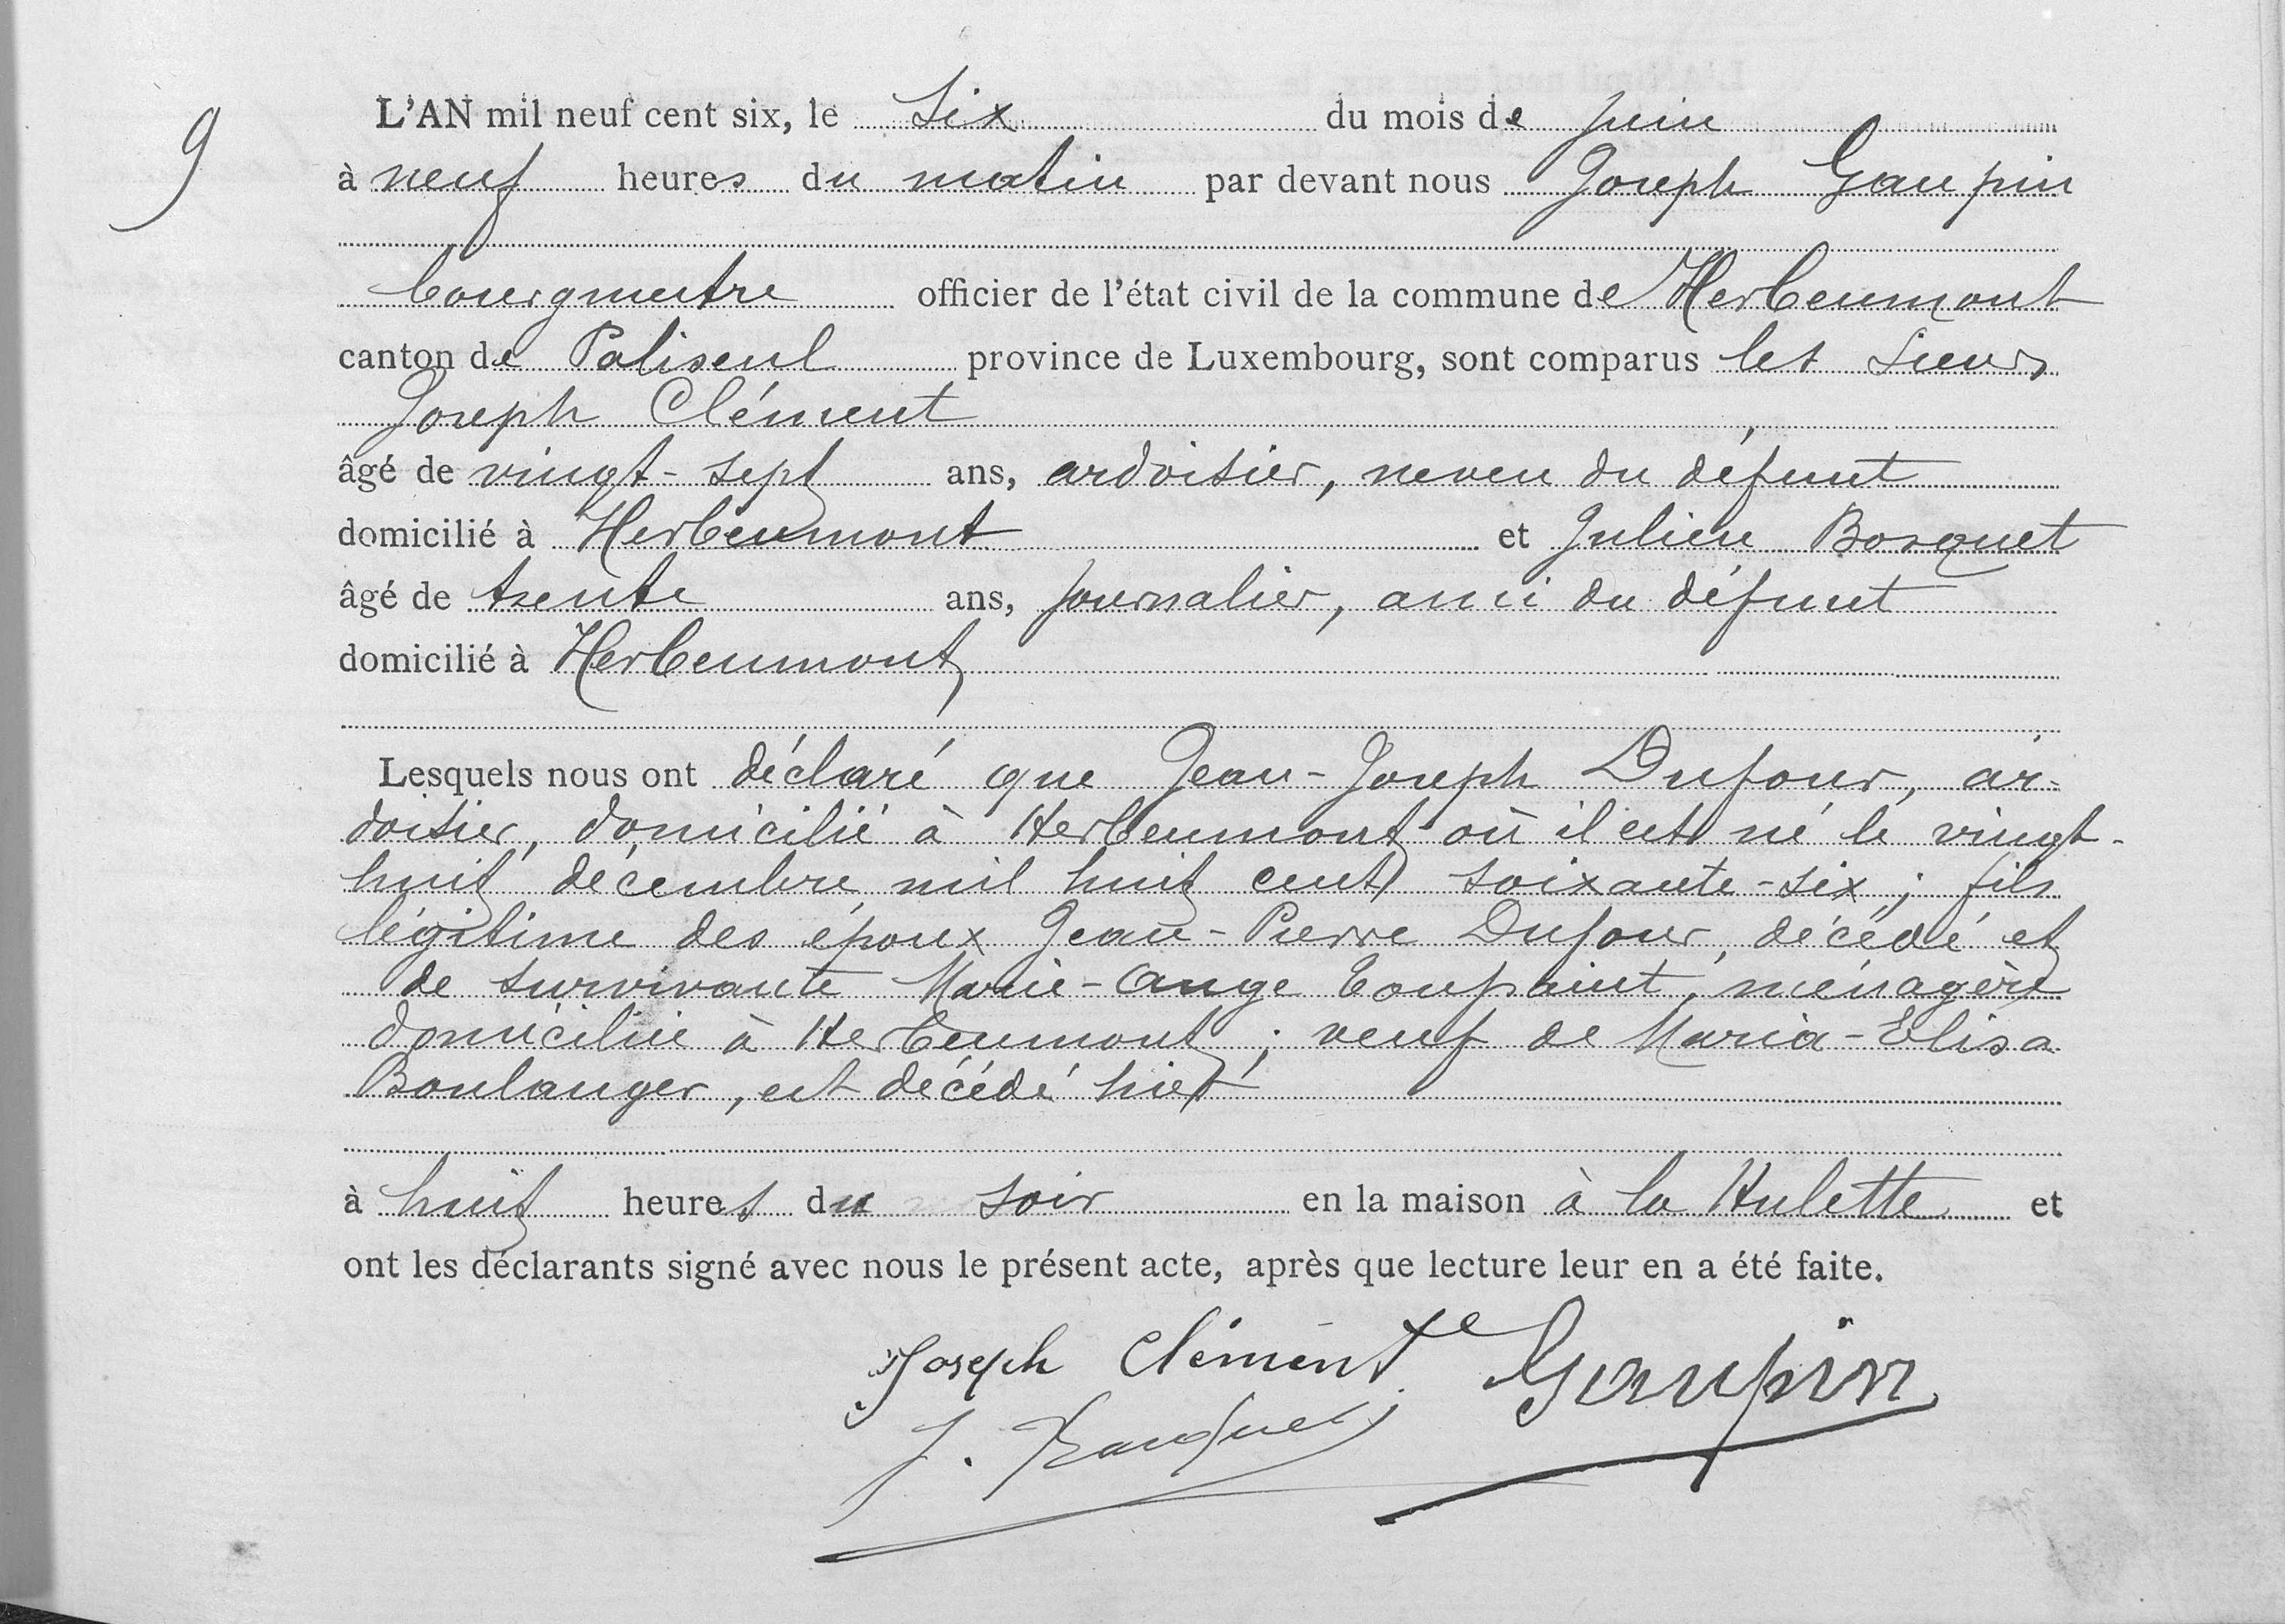 9
L'AN mil neuf cent six, le six du mois de juin
à neuf heures du matin par devant nous Joseph Gaupin
bourgmestre officier de l'état civil de la commune de Herbeumont
canton de Paliseul province de Luxembourg, sont comparus les sieurs
Joseph Clément
âgé de vingt-sept ans, ardoisier, neveu du défunt
domicilié à Herbeumont et Julien Bosquet
âgé de trente ans, journalier, ami du défunt
domicilié à Herbeumont
Lesquels nous ont déclaré que Jean-Joseph Dufour, ar-
doisier, domicilié à Herbeumont où il est né le vingt-
huit décembre mil huit cent soixante-six; fils
légitime des époux Jean-Pierre Dufour, décédé et
de survivante Marie-Ange Toupaint, ménagère
domiciliée à Herbeumont; veuf de Maria-Elisa
Boulanger, est décédé hier
à huit heures du soir en la maison à la Hulette et
ont les déclarants signé avec nous le présent acte, après que lecture leur en a été faite.
Joseph Clément Gaupin
J.